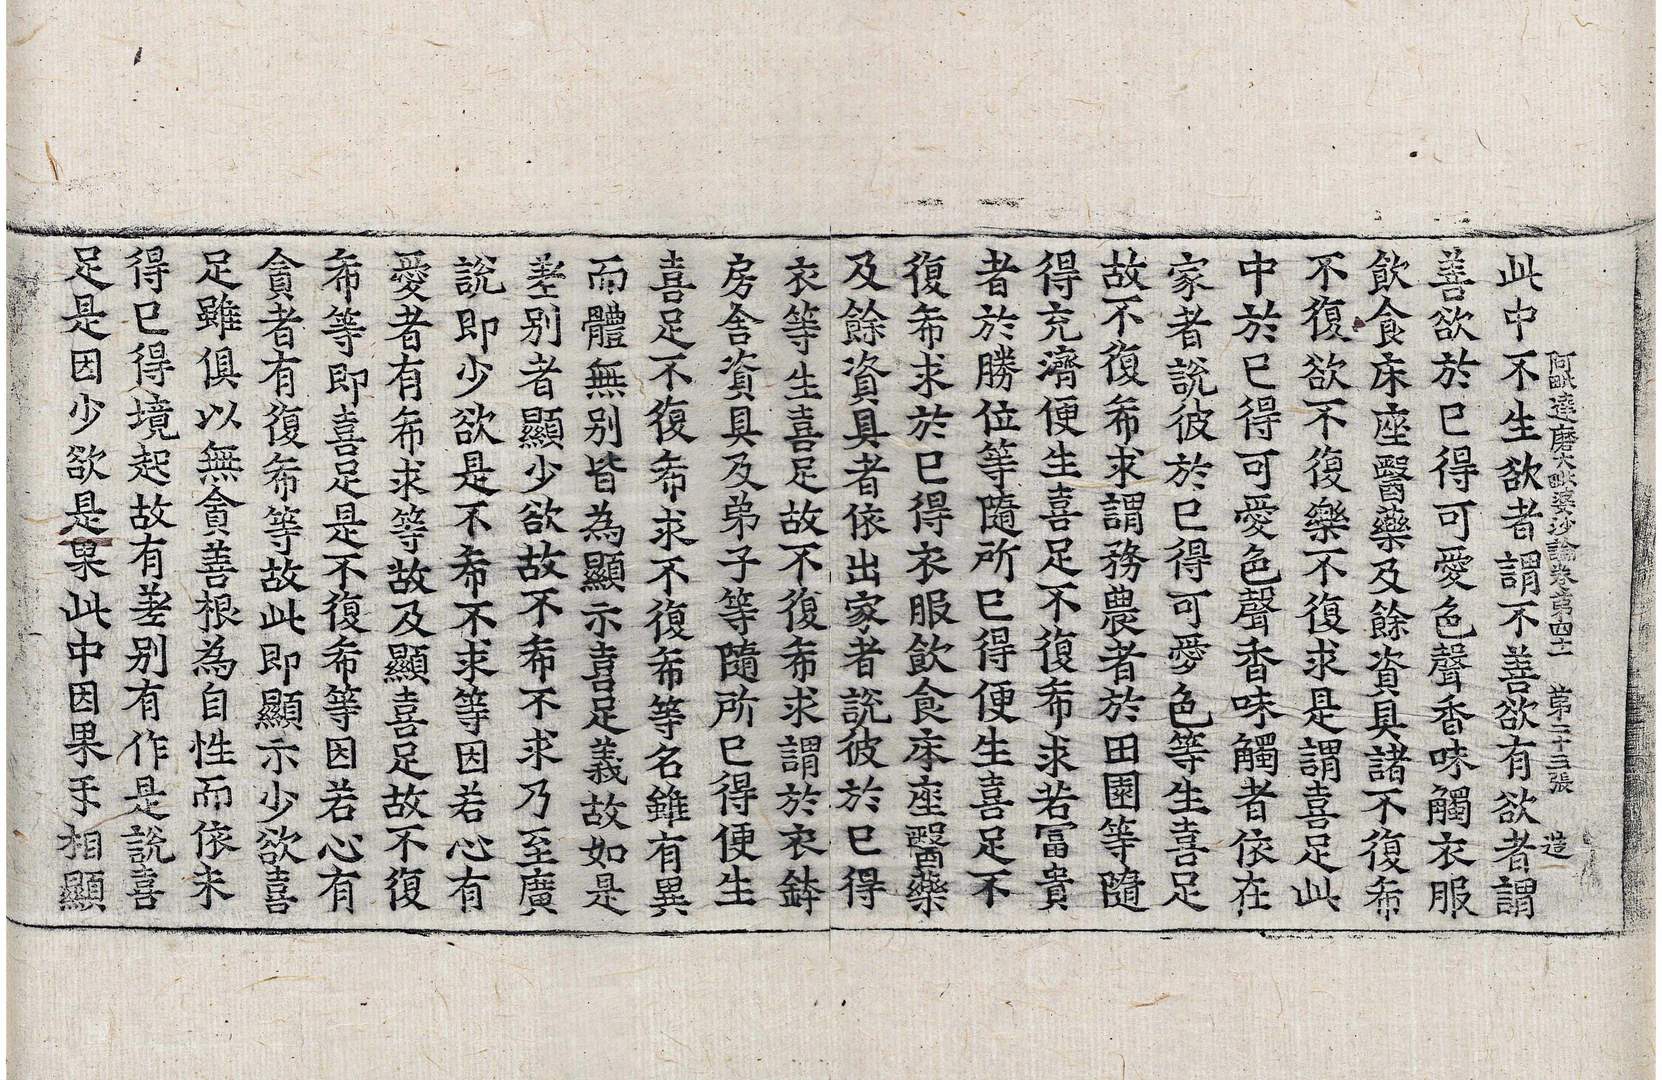 阿毗達磨大毗婆沙論卷第四十一　第二十三張　造
此中不生欲者謂不善欲有欲者謂
善欲於已得可愛色聲香味觸衣服
飲食床座醫藥及餘資具諸不復希
不復欲不復樂不復求是謂喜足此
中於已得可愛色聲香味觸者依在
家者說彼於已得可愛色等生喜足
故不復希求謂務農者於田園等隨
得充濟便生喜足不復希求若富貴
者於勝位等隨所已得便生喜足不
復希求於已得衣服飲食床座醫藥
及餘資具者依出家者說彼於已得
衣等生喜足故不復希求謂於衣鉢
房舍資具及弟子等隨所已得便生
喜足不復希求不復希等名雖有異
而體無別皆為顯示喜足義故如是
差別者顯少欲故不希不求乃至廣
說即少欲是不希不求等因若心有
愛者有希求等故及顯喜足故不復
希等即喜足是不復希等因若心有
貪者有復希等故此即顯示少欲喜
足雖俱以無貪善根為自性而依未
得已得境起故有差別有作是說喜
足是因少欲是果此中因果手相顯